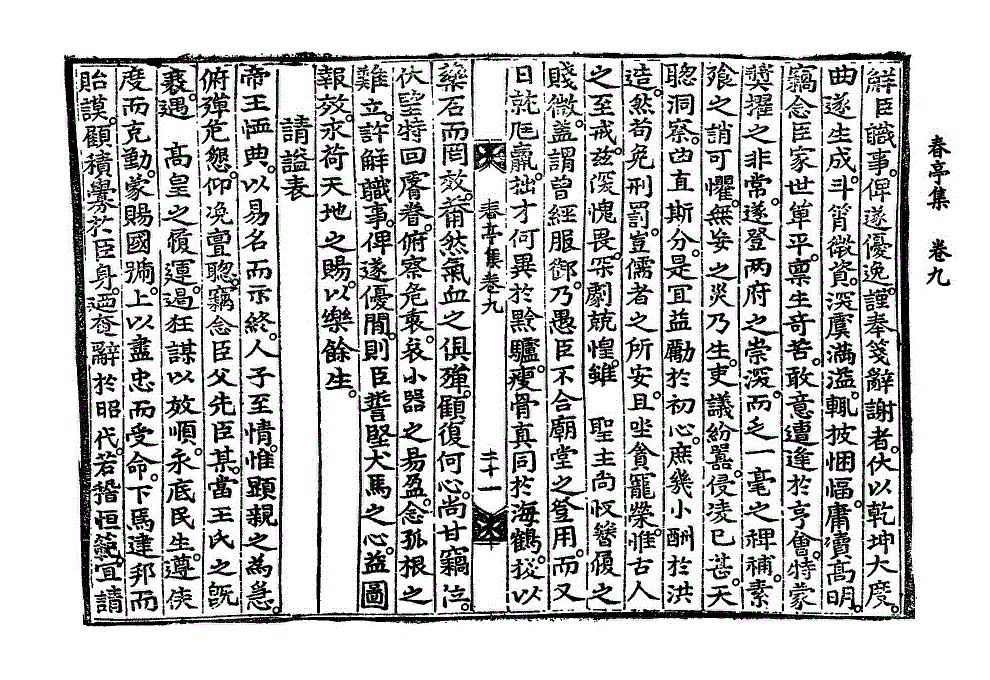 春亭集 卷九
鮮臣職事。俾遂優逸。謹奉箋辭謝者。伏以乾坤大度。
曲遂生成。斗筲微資。深虞滿溢。輒披悃愊。庸瀆高明。
竊念臣家世單平。稟生奇苦。敢意遭逢於亨會。特蒙
奬擢之非常。遂登两府之崇深。而乏一毫之裨補。素
飱之誚可懼。無妄之災乃生。吏議紛囂。侵凌已甚。天
聦洞察。曲直斯分。是冝益勵於初心。庶幾小酬於洪
造。然苟免刑罰。豈儒者之所安。且坐貪寵榮。惟古人
之至戒。玆深愧畏。采劇兢惶。雖 聖主尚恱簪履之
賤微。盖謂曾經服御。乃愚臣不合廟堂之登用。而又
日就尫羸。拙才何異於黔驢。瘦骨真同於海鶴。扱以
春亭集卷九 二十一
藥石而罔效。薾然氣血之俱殫。顧復何心。尚甘竊沽。
伏望特回睿眷。俯察危衷。哀小器之易盈。念孤根之
難立。許解職事。俾遂優閒。則臣誓堅犬馬之心。益圖
報效。永荷天地之賜。以樂餘生。
請謚表
帝王恤典。以易名而示終。人子至情。惟顯親之為急。
俯殫危懇。仰凂亶聦。竊念臣父先臣某。當王氏之旣
衰。遇 高皇之應運。遏狂謀以效順。永底民生。遵侯
度而克勤。蒙賜國號。上以盡忠而受命。下焉建邦而
貽謨。顧積釁於臣身。迺奄辭於昭代。若稽恒範。宜請